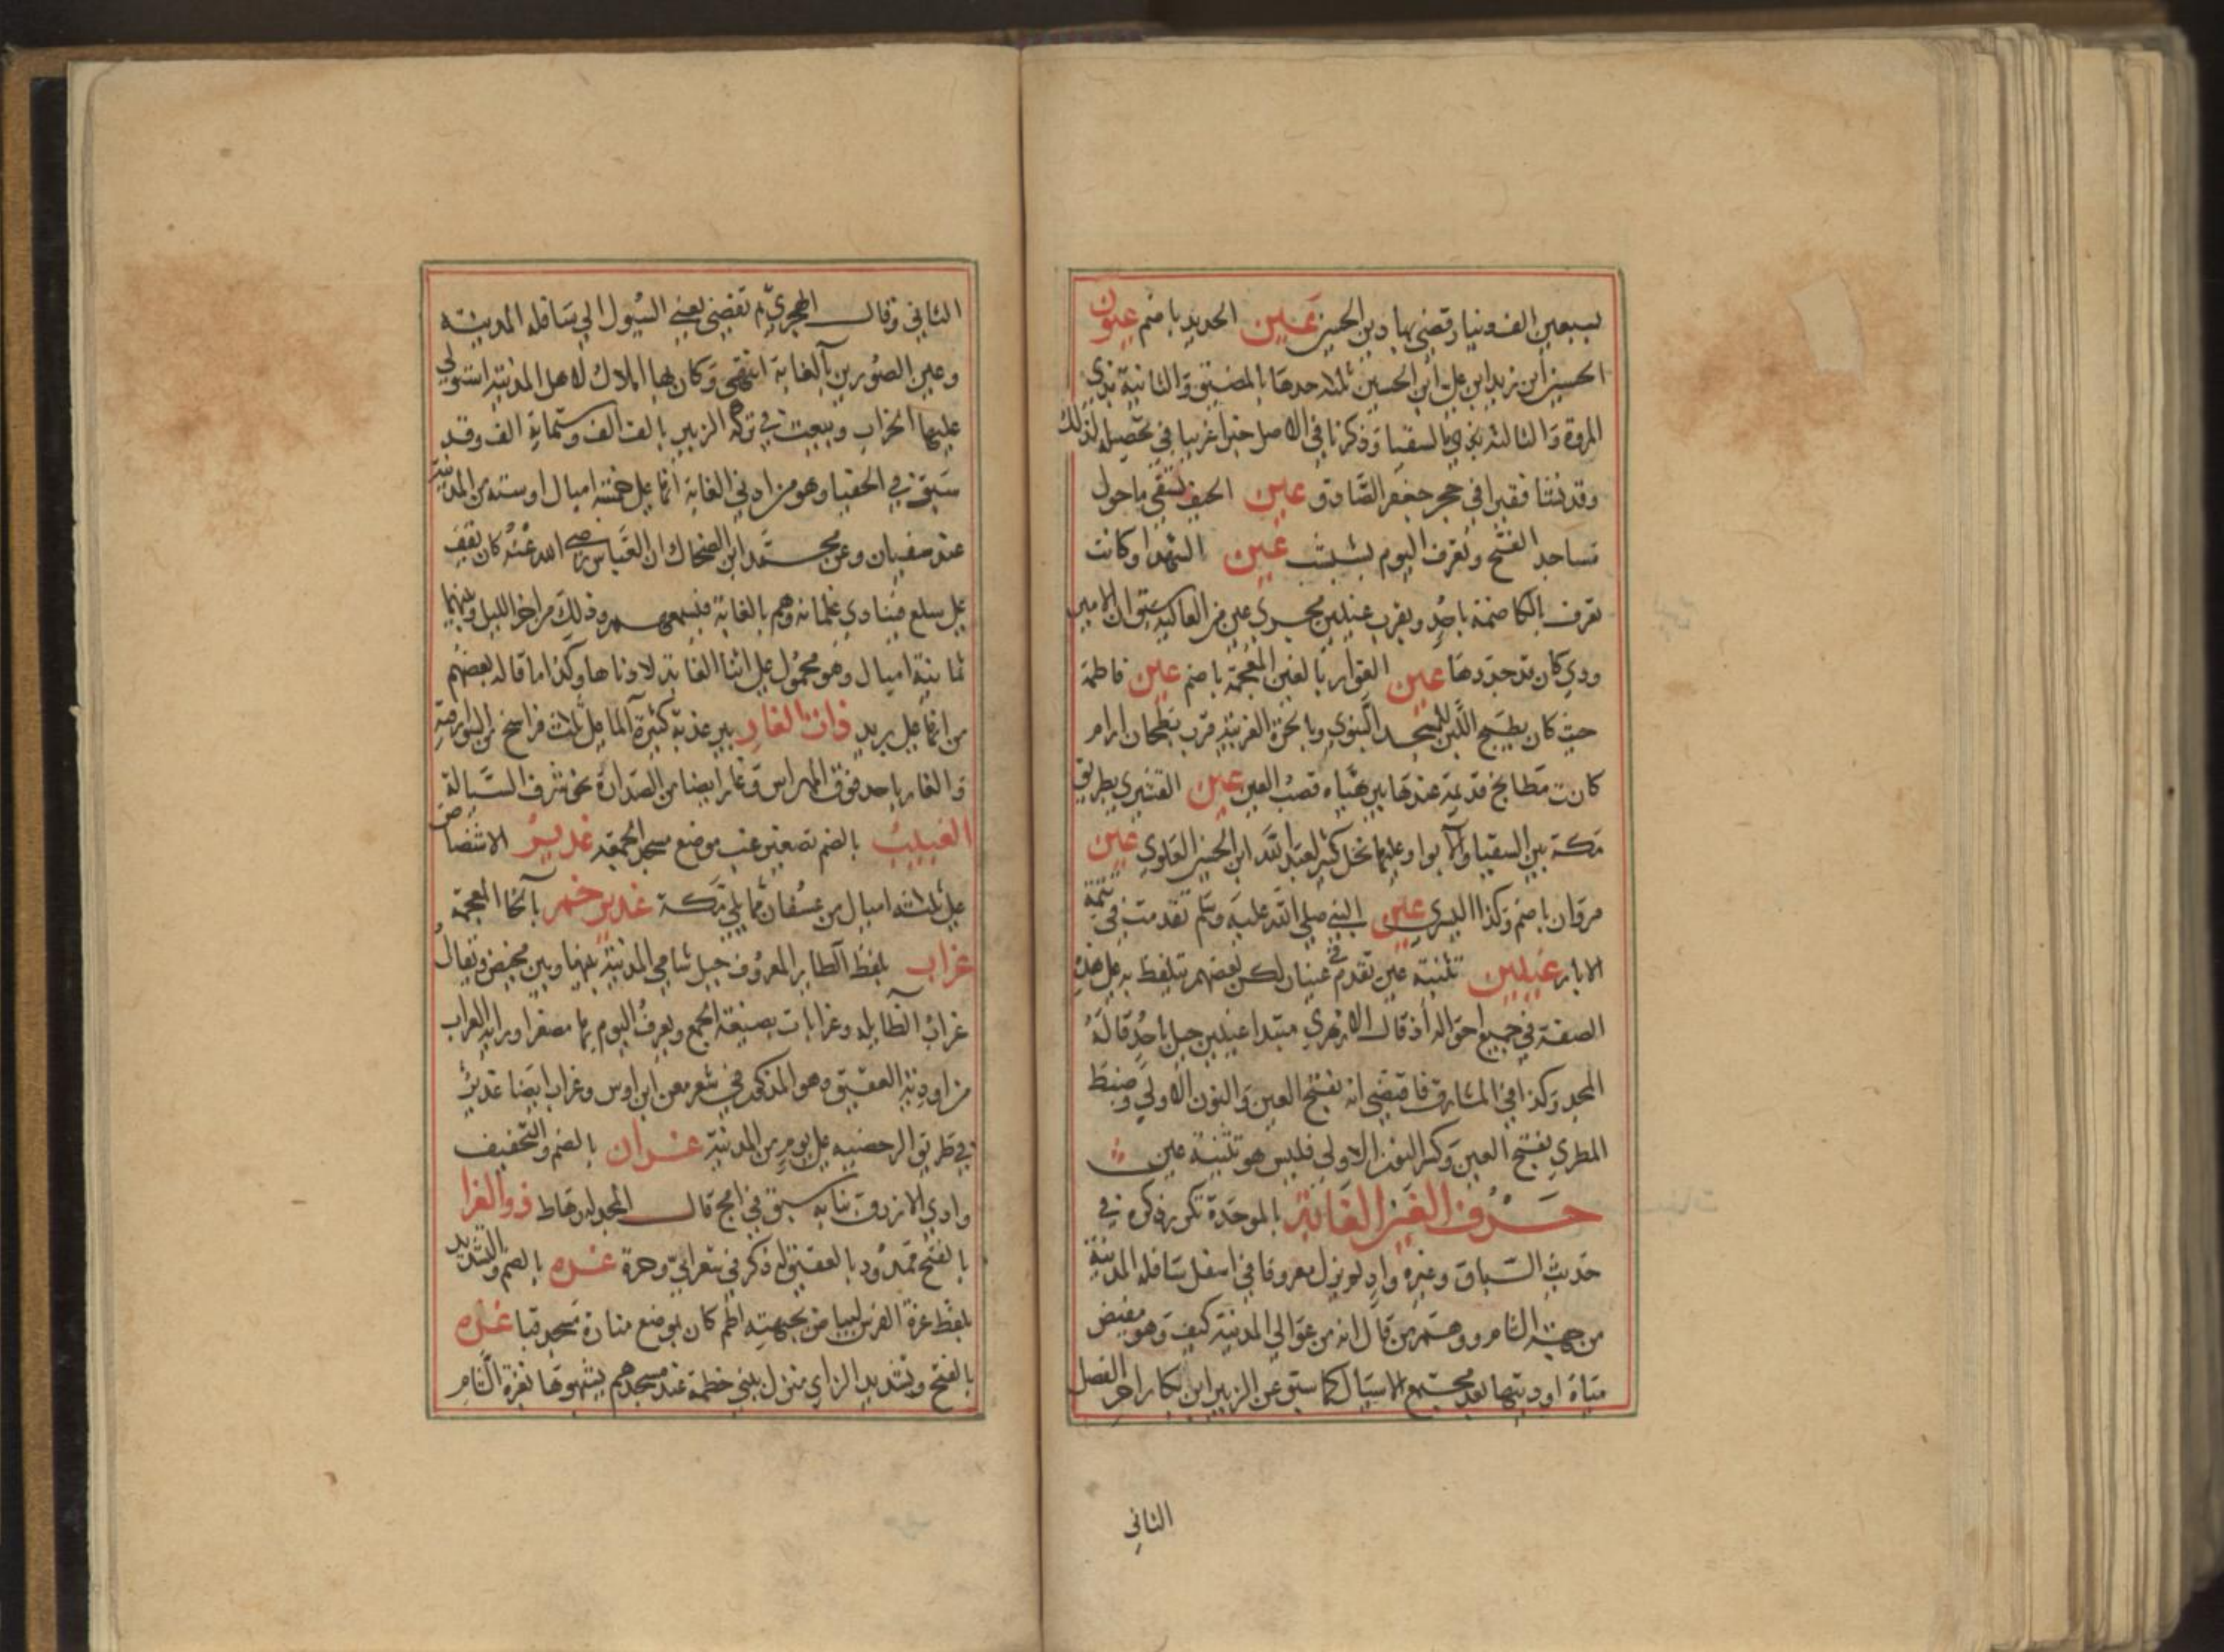 بسبعين الف دينار وقضى بها دين الحسين عين الحديد باضم عيون
الحسين ابن زيد ابن علي ابن الحسين ثلاثة احدها بالمضيق والثانية بذي
المروة والثالثة بالسقيا وذكرنا في الاصل خبرا غريبا في تحصيله لذلك
وقد نشا فقيرا في حجر جعفر الصادق عين الخيف تسقي ما حول
مساجد الفتح وتعرف اليوم عين الشهدا وكانت
تعرف بالكاظمة باحد وبقرب عينين مجرى عين من العالية سبق ان الامير
ودي كان قد جددها عين القوار بالغين المعجمة باضم عين فاطمة
حيث كان يطبخ اللبن للمسجد النبوي وبالحرة الغربية قرب بطحان ارام
كانت مطابخ قديمة عندها بير هناه قصب العين عين القشيري بطريق
مكة بين السقيا والابوا وعليها نخل كثير لعبد الله ابن الحسن العلوي عين
مروان باضم وكذا اليسرى عين النبي صلى الله عليه وسلم تقدمت في تتمة
الابار عينين تثنية عين تقدم في عينان لكن بعضهم يتلفظ به على هذه
الصفة في جميع احواله اذ قال الازهري مبتدا عينين جبل باحد قاله
المجد وكذا في المشارق فاقتضى انه بفتح العين والنون الاولى وضبط
المطري بفتح العين وكسر النون الاولى فليس هو تثنية عين
حرف الغين الغابة بالموحدة تكرر ذكره في
حديث السباق وغيره واد لم يزل معروفا في اسفل سافلة المدينة
من جهة الشام ووهم من قال انه من عوالي المدينة كيف وهو مغيض
مياه اوديتها بعد مجتمع الاسيال كما سبق عن الزبير ابن بكار اخر الفصل
الثاني
الثاني وقال الهجري ثم تفضي يعني السيول الى سافلة المدينة
وعين الصورين بالغابة انتهى وكان بها املاك لاهل المدينة استولى
عليها الخراب وبيعت في تركة الزبير بالف الف وستماية الف وقد
سبق في الحفيا وهو من ادنى الغابة انها على خمسة اميال او ستة من المدينة
عند سفيان وعن محمد ابن الضحاك ان العباس رضي الله عنه كان يقف
على سلع فينادي غلمانه وهم بالغابة فيسمعهم وذلك من اخر الليل وبينهما
ثمانية اميال وهو محمول على اثنا الغابة لا ادناها وكذا ما قاله بعضهم
من انها على بريد ذات الغار بير عذبة كثيرة الما على ثلاث فراسخ من السوارقية
والغار باحد فوق المهراس وغار ايضا من الصدارة نحو شرف السيالة
الغبيب بالضم تصغير غب موضع مسجد الجمعة غدير الاشضاض
على ثلاثة اميال من عسفان مما يلي مكة غدير خم بالخا المعجمة
غراب بلفظ الطاير المعروف جبل شامي المدينة بينها وبين مخيض ويقال
غراب الضايلة وغرابات بصيغة الجمع ويعرف اليوم بها مصغرا ورابه الغراب
من اودية العقيق وهو المذكور في شعر معن ابن اوس وغراب ايضا غدير
في طريق الرحضيه على يوم من المدينة غران بالضم والتخفيف
وادي الازرق بنايه سبق في امج قال المجد لرهاط ذو الغرا
بالفتح ممدود بالعقيق له ذكر في شعر ابي وجزة غره بالضم والتشديد
بلفظ غرة الفرس لبياض بجبهته اطم كان بموضع منارة مسجد قبا غزه
بالفتح وتشديد الزاي منزل بني خطمة عند مسجدهم يشبهوها بغزة الشام